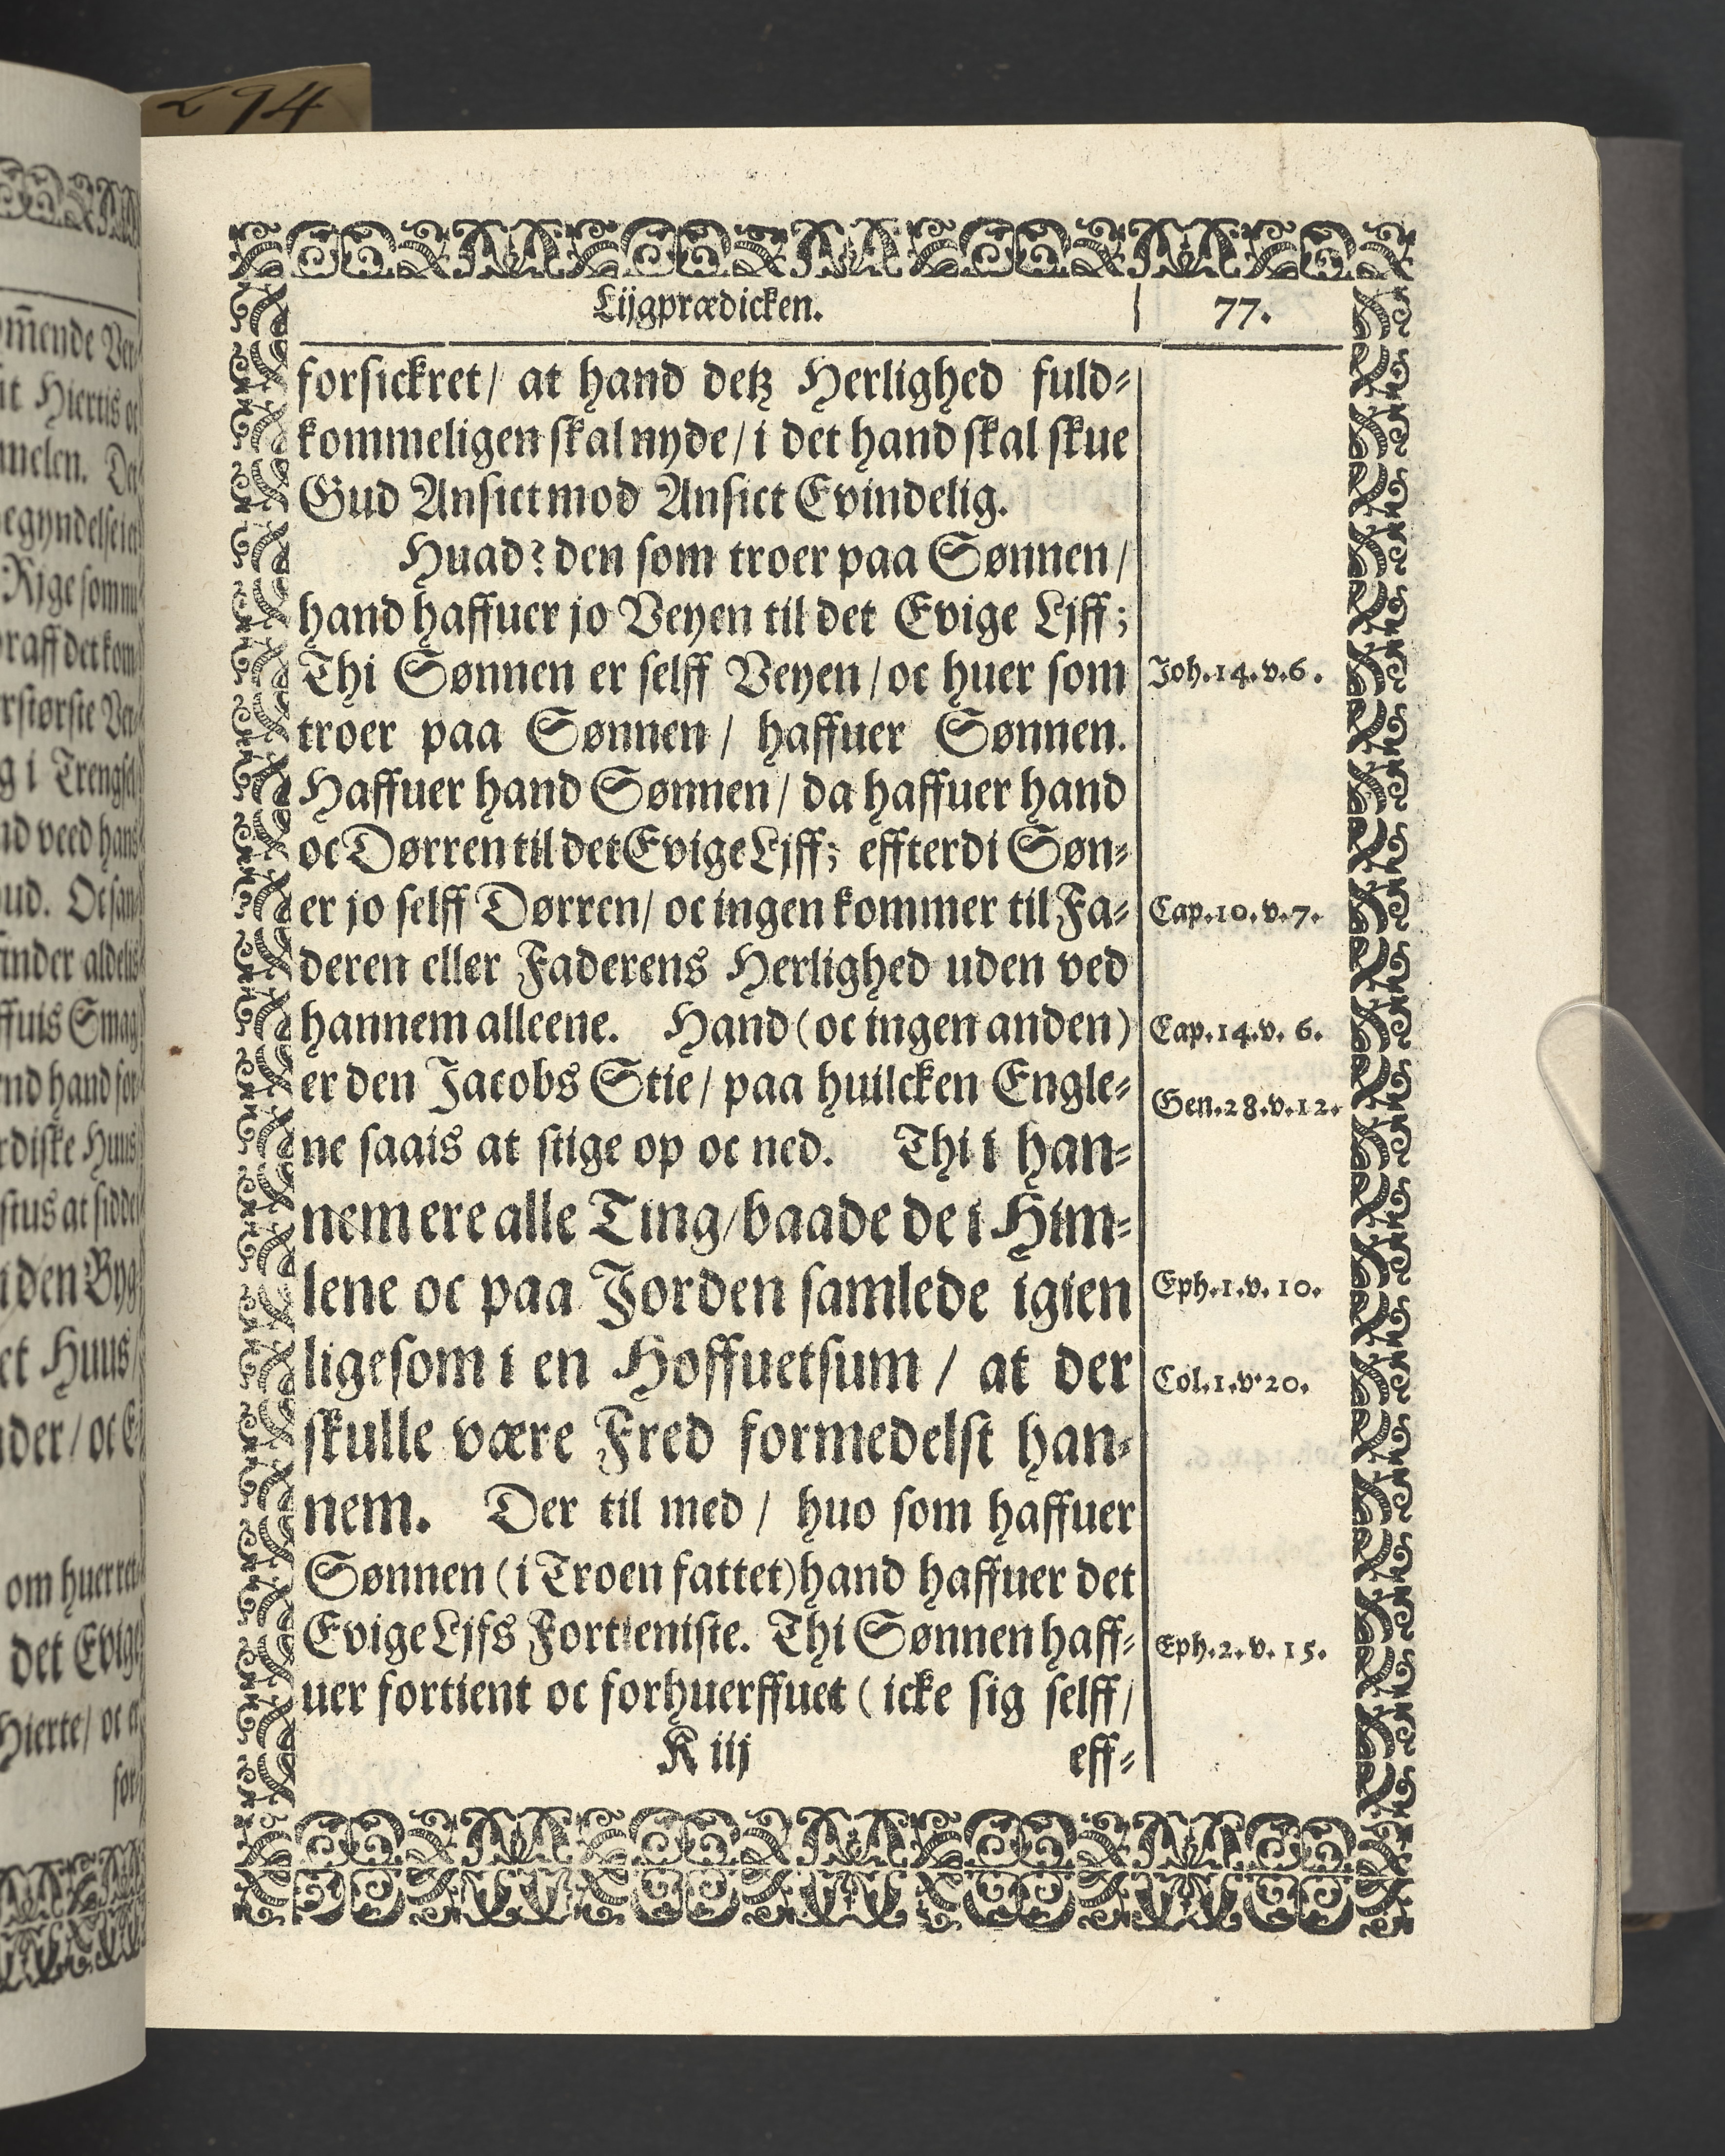 294
Lijgprædicken.
77.
forsickret/ at hand detz Herlighed fuld-
kommeligen skal nyde/ i det hand skal skue
Gud Ansict mod Ansict Evindelig.
Huad? den som troer paa Sønnen/
hand haffuer jo Veyen til det Evige Ljff;
Thi Sønnen er selff Veyen/ oc huer som
Joh.14.v.6.
troer paa Sønnen/ haffuer Sønnen.
Haffuer hand Sønnen/ da haffuer hand
oc Dørren til det Evige Ljff; effterdi Søn-
er jo selff Dørren/ oc ingen kommer til Fa-
Cap.10.v.7.
deren eller Faderens Herlighed uden ved
hannem alleene. Hand (oc ingen anden)
Cap.14.v. 6.
er den Jacobs Stie/ paa huilcken Engle-
Gen.28.v.12.
ne saais at stige op oc ned. Thi i han-
nem ere alle Ting/ baade de i Him-
lene oc paa Jorden samlede igien
Eph.1.v.10.
ligesom i en Hoffuetsum/ at der
Col.1.v.20.
skulle være Fred formedelst han-
nem. Der til med/ huo som haffuer
Sønnen (i Troen fattet) hand haffuer det
Evige Ljfs Fortieniste. Thi Sønnen haff-
Eph.2.v.15.
uer fortient oc forhuerffuet (icke sig selff/
K iij
eff-